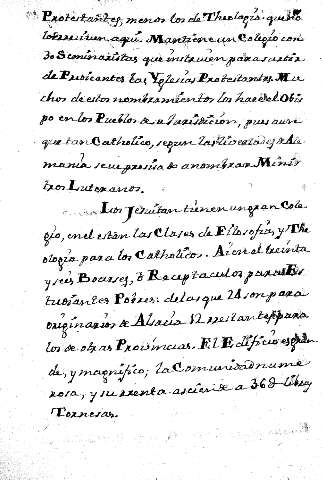 Protestantes, menos los de Theologia que solo
los reciven aqui. Mantiene un Colegio con
30 Seminaristas que instruien para surtir
de Predicantes las Yglesias Protestantes. Mu
chos de estos nombramientos los hace el Obis
po en los Pueblos de su Jurisdicion, pues aun
que tan Catholico, segun las Leies de la Ale
mania se ve precisado a nombrar Minis
tros Luteranos.
Los Jesuitas tienen un gran Cole
gio, en el estan las Clases de Filosofia, y The
ologia para los Catholicos. Ai en el treinta
y seis Bourses, ò Receptaculos para Es
tudiantes Pobres: de las que 24 son para
originarios de Alsacia 12 restantes para
los de otras Provincias. El Edificio es gran
de, y magnifico; la Comunidad nume
rosa, y su renta asciende a 36@ libras
Tornesas.